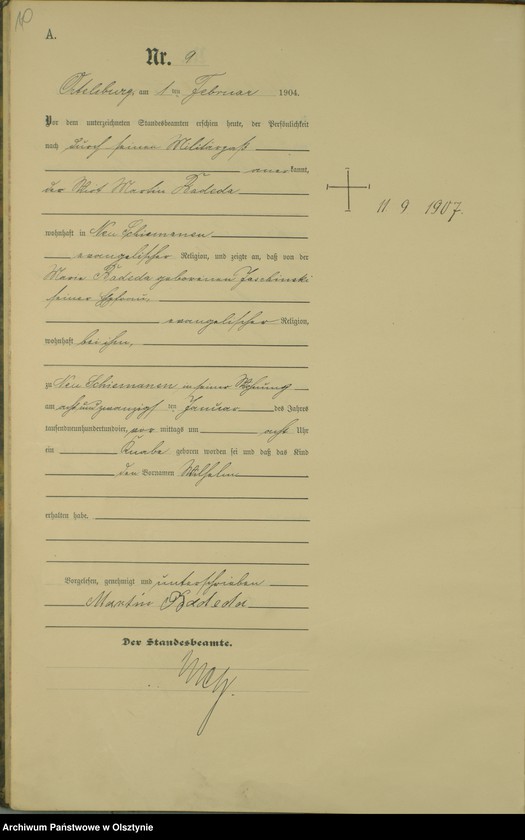 A.
Nr. 9
Ortelsburg, am 1ten Februar 1904.
Vor dem unterzeichneten Standesbeamten erschien heute, der Persönlichkeit
nach durch seinen Militärpaß
anerkannt,
der Wirt Martin
wohnhaft in Neu Schiemanen
evangelischer Religion, und zeigte an, daß von der
Marie geborenen
seiner Ehefrau,
evangelischer Religion,
wohnhaft bei ihm,
zu Neu Schiemanen in seiner Wohnung
am achtundzwanzigsten Januar des Jahres
tausendneunhundertundvier, vor mittags um acht Uhr
ein Knabe geboren worden sei und daß das Kind
den Vornamen Wilhelm
erhalten habe.
Vorgelesen, genehmigt und unterschrieben
Martin
Der Standesbeamte.
11 9 1907.
Archiwum Państwowe w Olsztynie